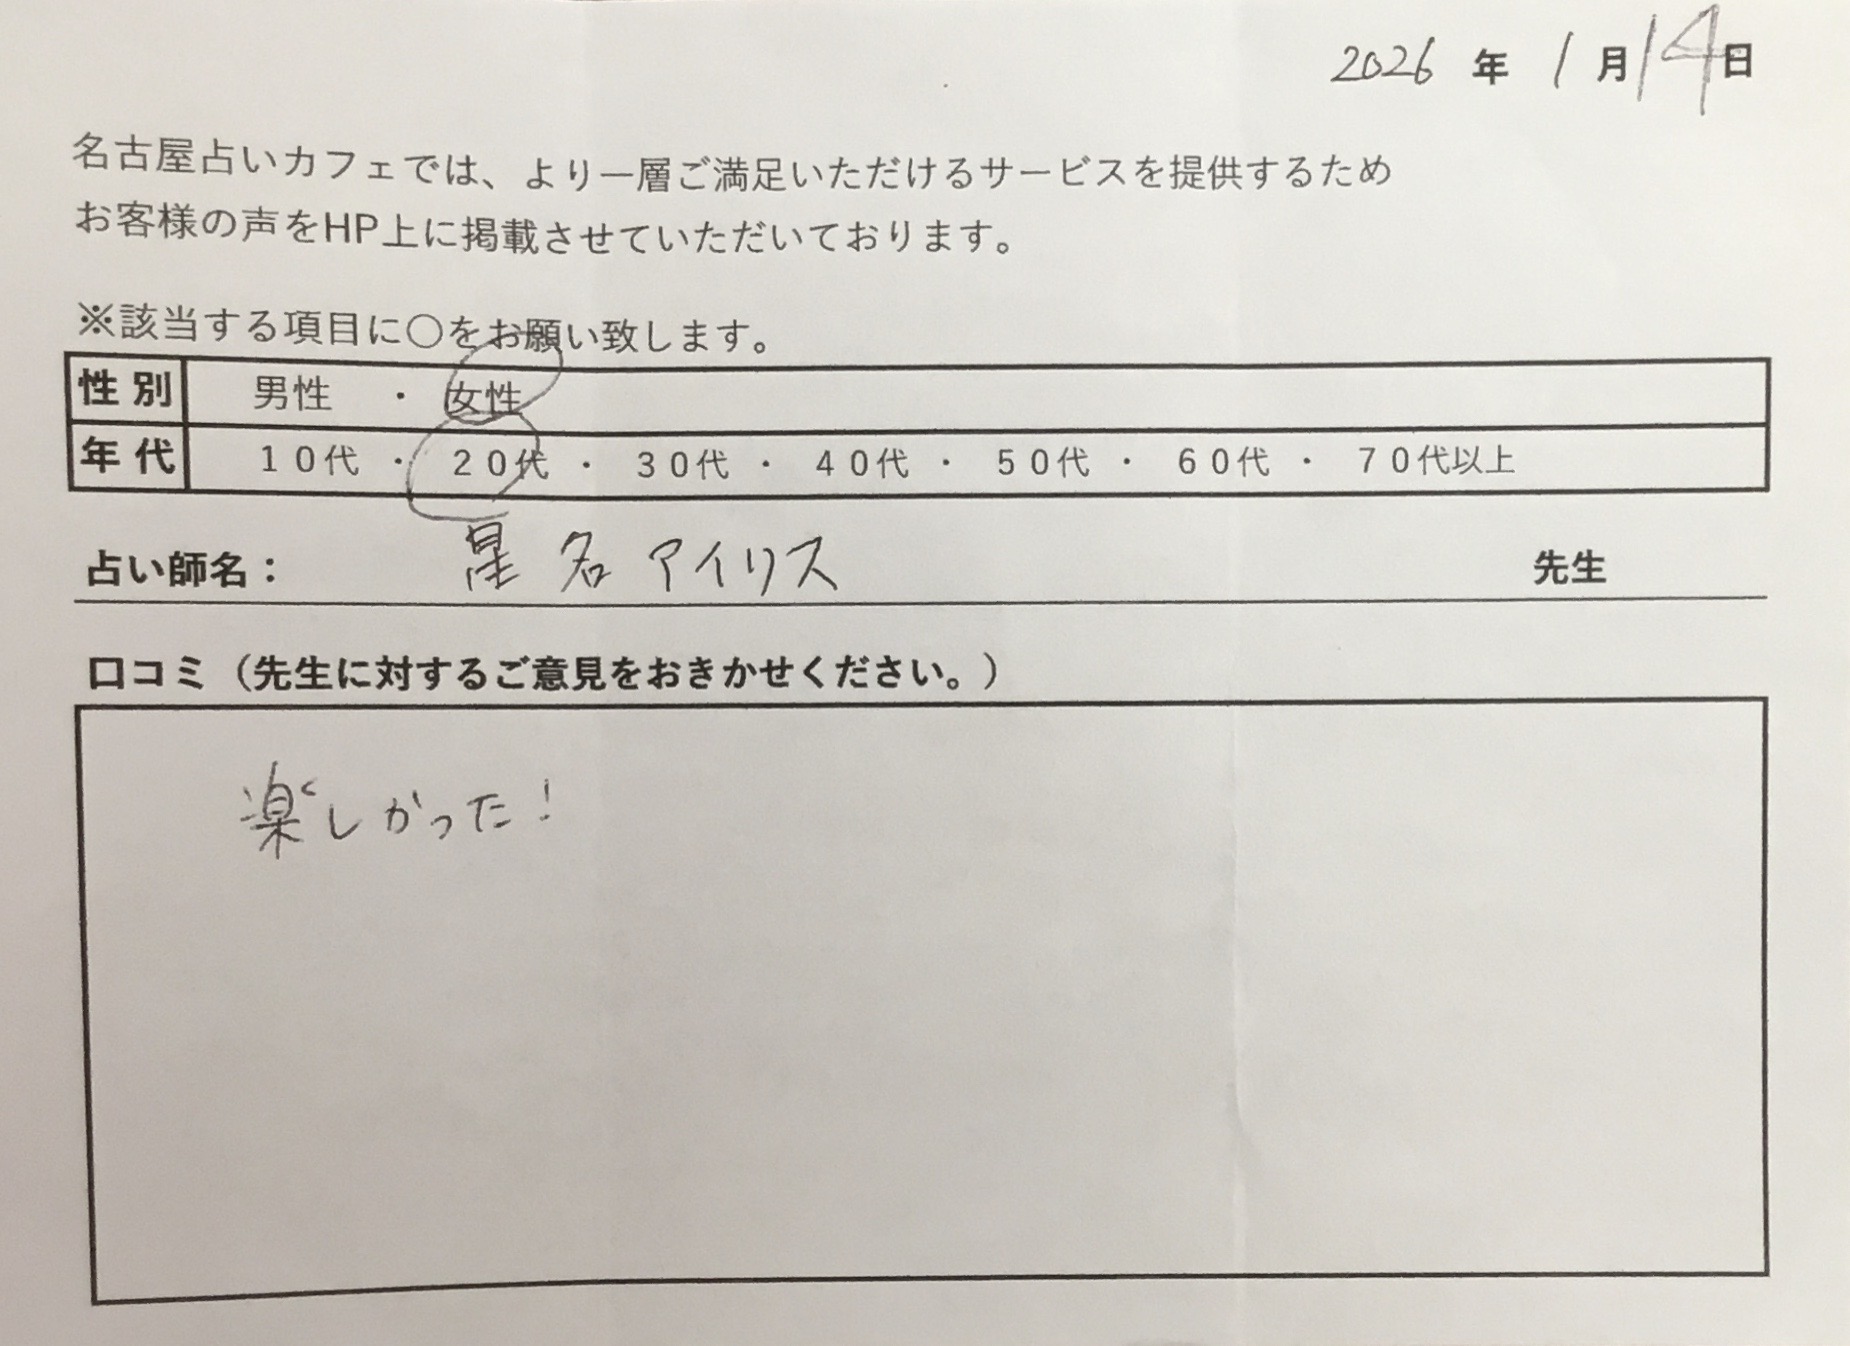 2026 年 1 月 14 日
名古屋占いカフェでは、より一層ご満足いただけるサービスを提供するため
お客様の声をHP上に掲載させていただいております。
※該当する項目に○をお願い致します。
性別 男性 ・ 女性
年代 10代 ・ 20代 ・ 30代 ・ 40代 ・ 50代 ・ 60代 ・ 70代以上
占い師名： 星名アイリス 先生
口コミ（先生に対するご意見をおきかせください。）
楽しかった！